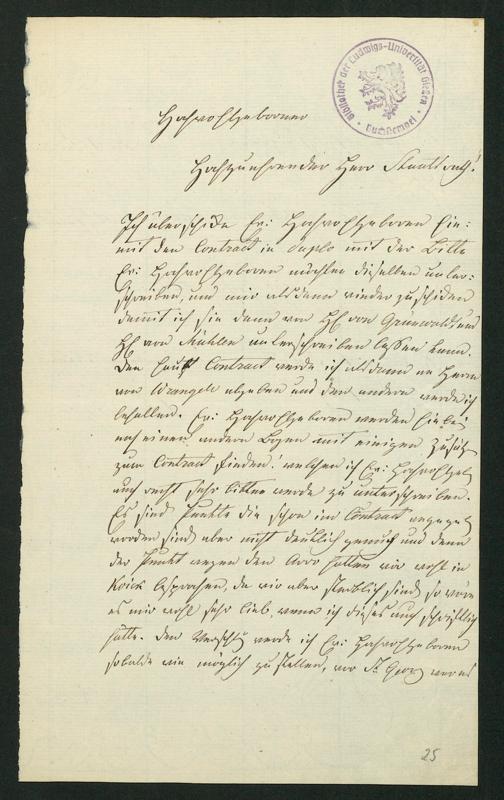 Bibliothek der Ludwigs-Universität Gießen
Buchstempel
Hochwohlgeborner
Hochzuehrender Herr Staatsrath!
Ich überschicke Ew: Hochwohlgeboren hie:
mit den Contract in duplo mit der Bitte
Ew: Hochwohlgeboren möchten dieselben unter:
schreiben, und mir alsdann wieder zuschicken
damit ich sie dann von H von Grünwaldt und
H von Mühlen unterschreiben lassen kann.
Den Contract werde ich alsdann an Herrn
von Wrangell abgeben und den andern werde ich
behalten. Ew: Hochwohlgeboren werden hiebei
noch einen andern Bogen mit einigen Zusätzen
zum Contract finden! welchen ich Ew: Hochwohlgeb
auch recht sehr bitten werde zu unterschreiben.
Es sind Punkte die schon im Contract
worden sind aber nicht deutlich genuch und denn
der Punkt wegen den hatten wir wohl in
Koick besprochen, da wir aber sterblich sind, so wäre
es mir wohl sehr lieb, wenn ich dieses auch schriftlich
hätte. Den werde ich Ew: Hochwohlgeboren
sobalde wie möglich zustellen, vor St. Georg
25